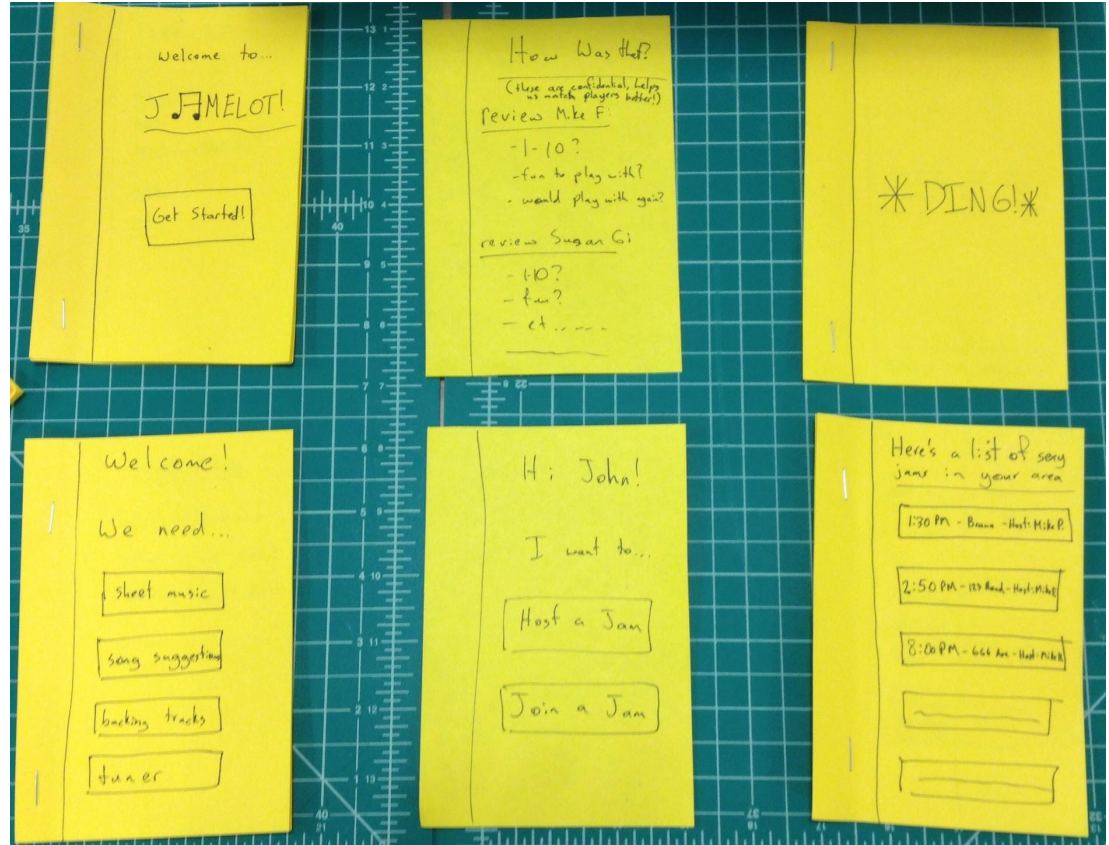 Welcome to...
J♫MELOT!
Get Started!
How Was that?
(these are confidential, helps
us match players better!)
review Mike F:
- 1-10?
- fun to play with?
- would play with again?
review Susan G:
- 1-10?
- fun?
- et......
* DING! *
Welcome!
We need...
sheet music
song suggestions
backing tracks
tuner
Hi John!
I want to...
Host a Jam
Join a Jam
Here's a list of sexy
jams in your area
1:30 PM - - Host: Mike P.
2:50 PM - 123 Road - Host: Mike
8:00 PM - 666 Ave - Host: Mike